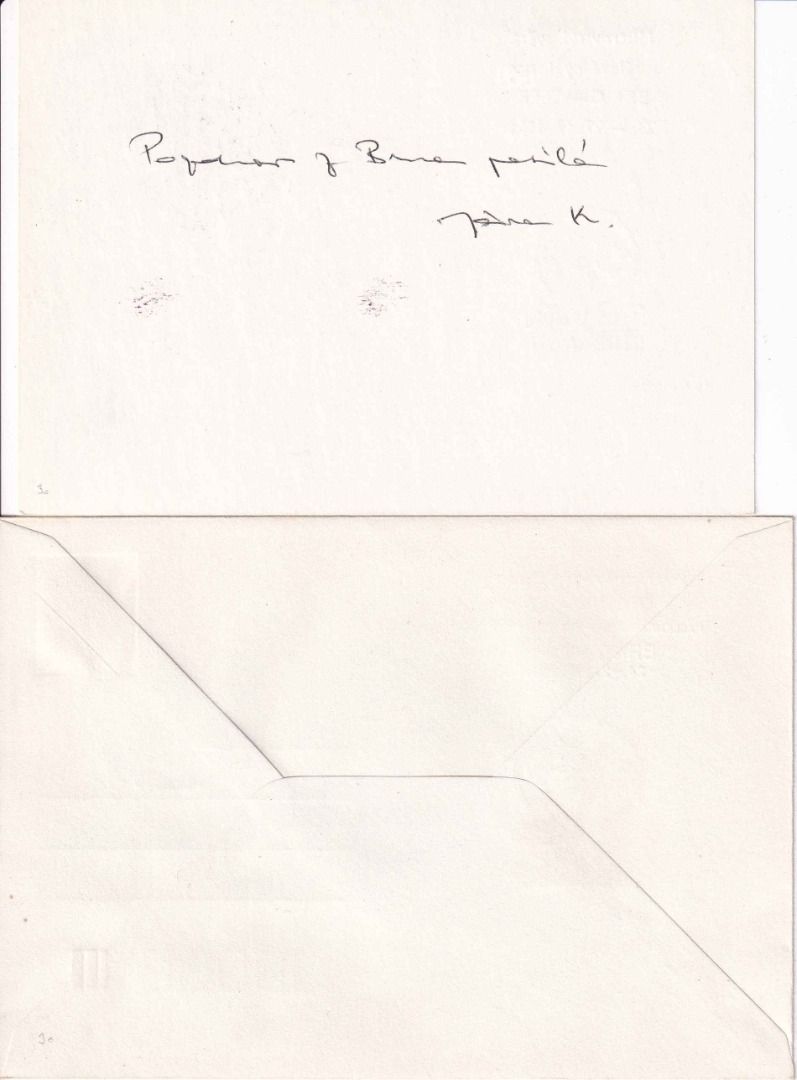 Pozdrav z Brna posílá
Jára K.
30
30